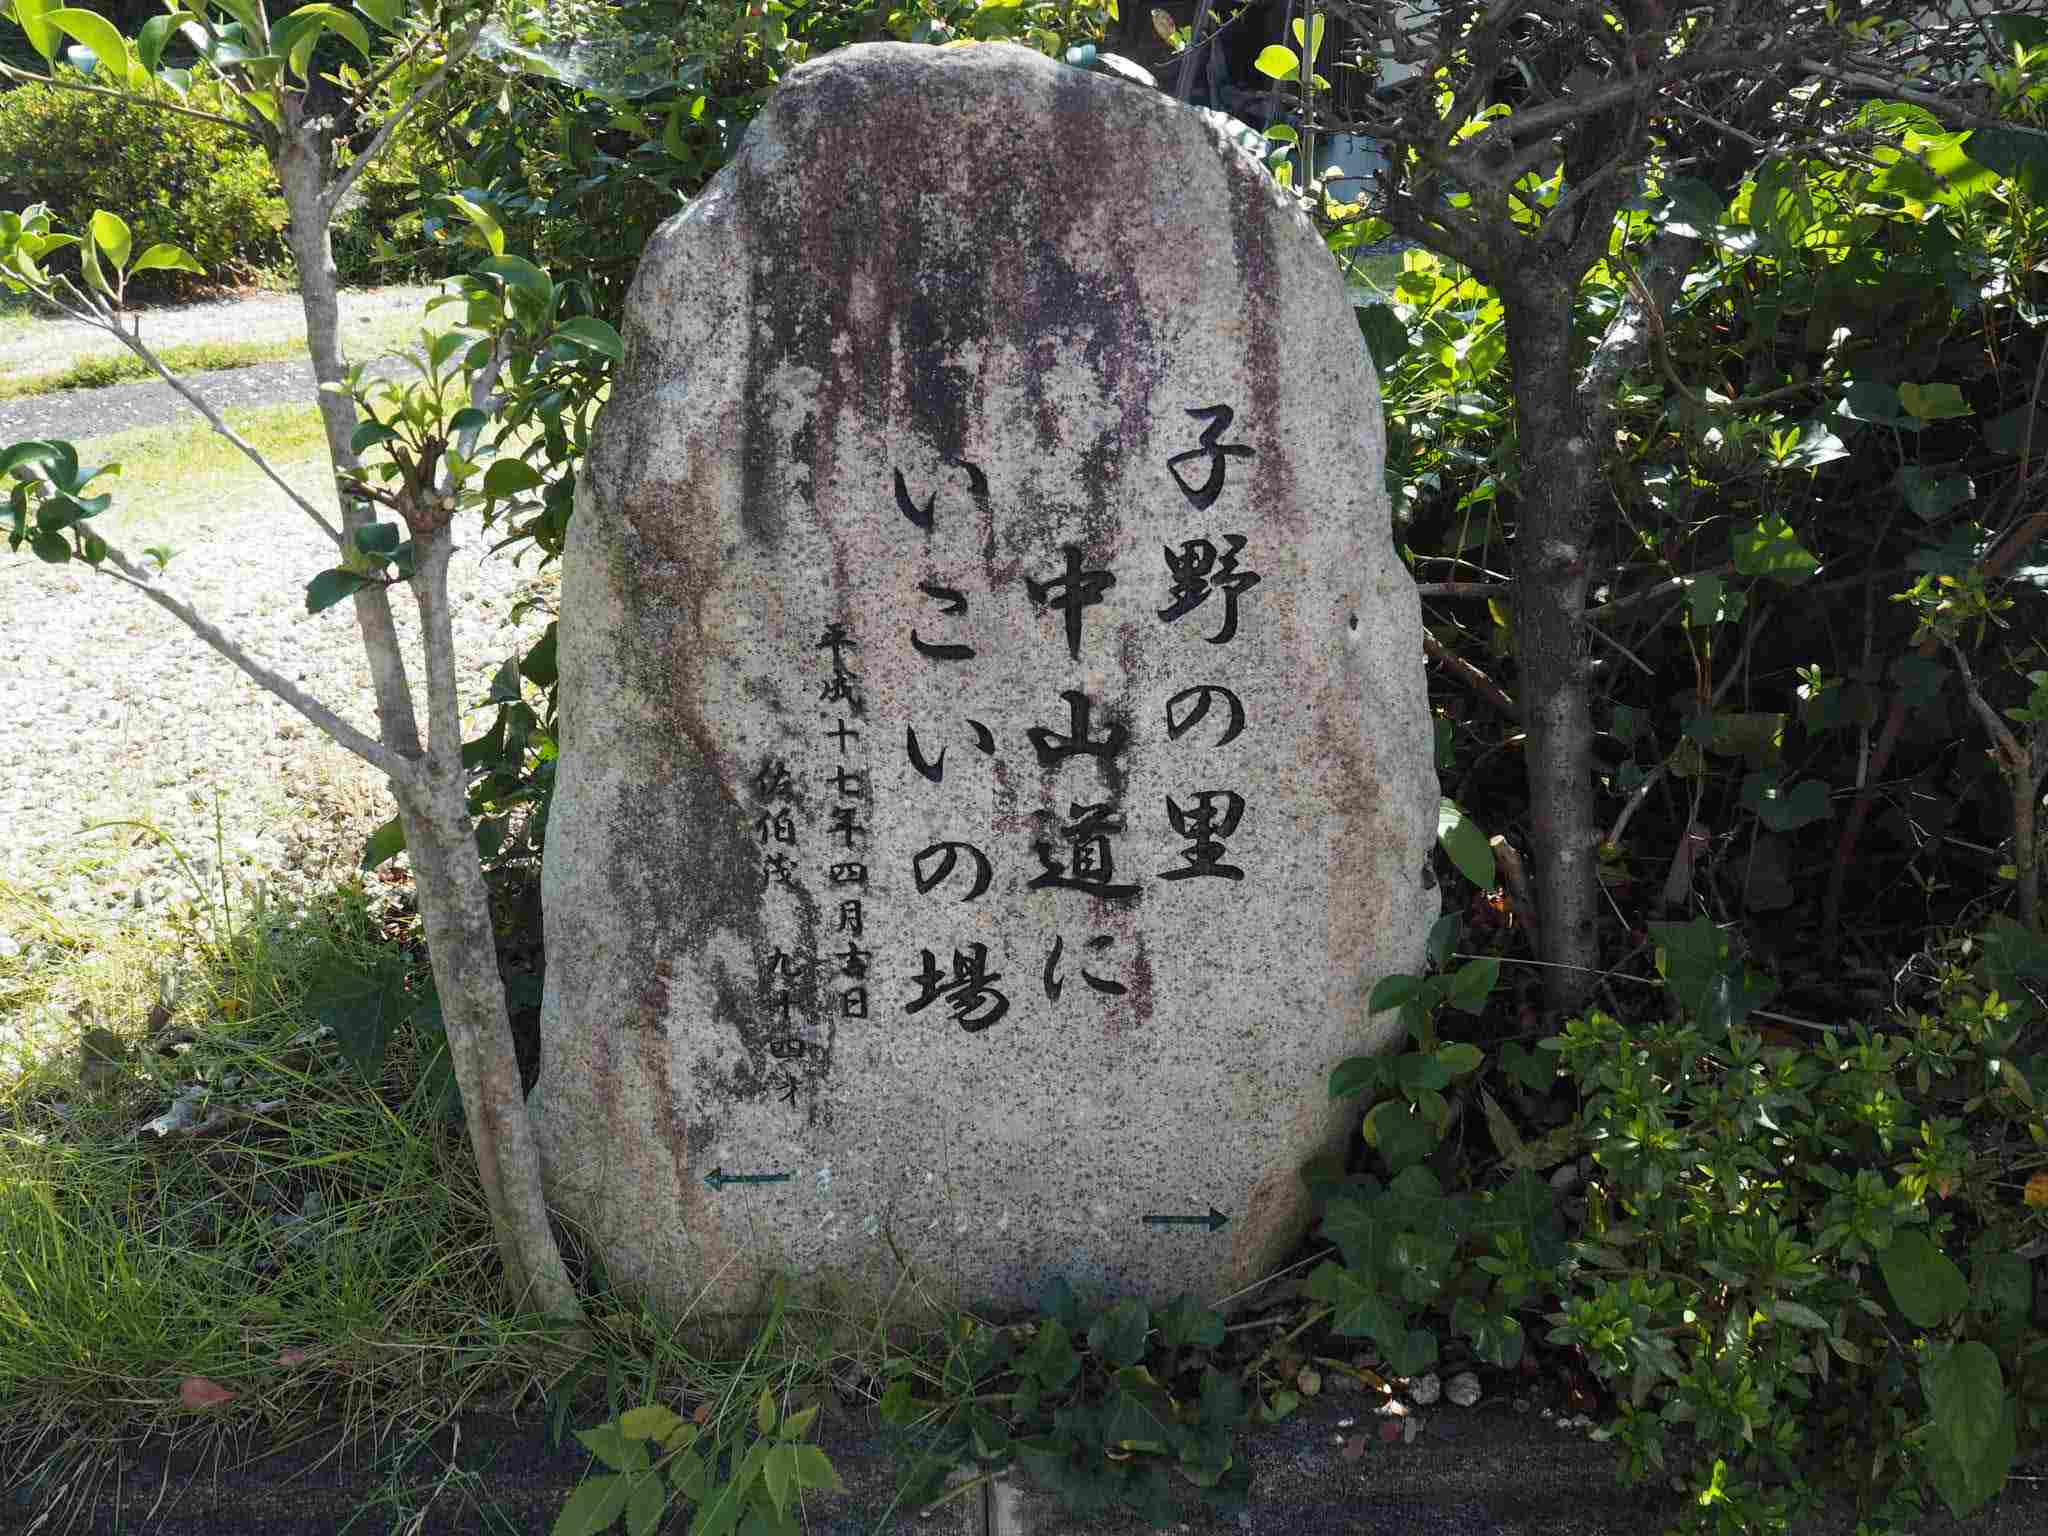 子野の里
中山道に
いこいの場
平成十七年四月吉日
佐伯茂 九十四才